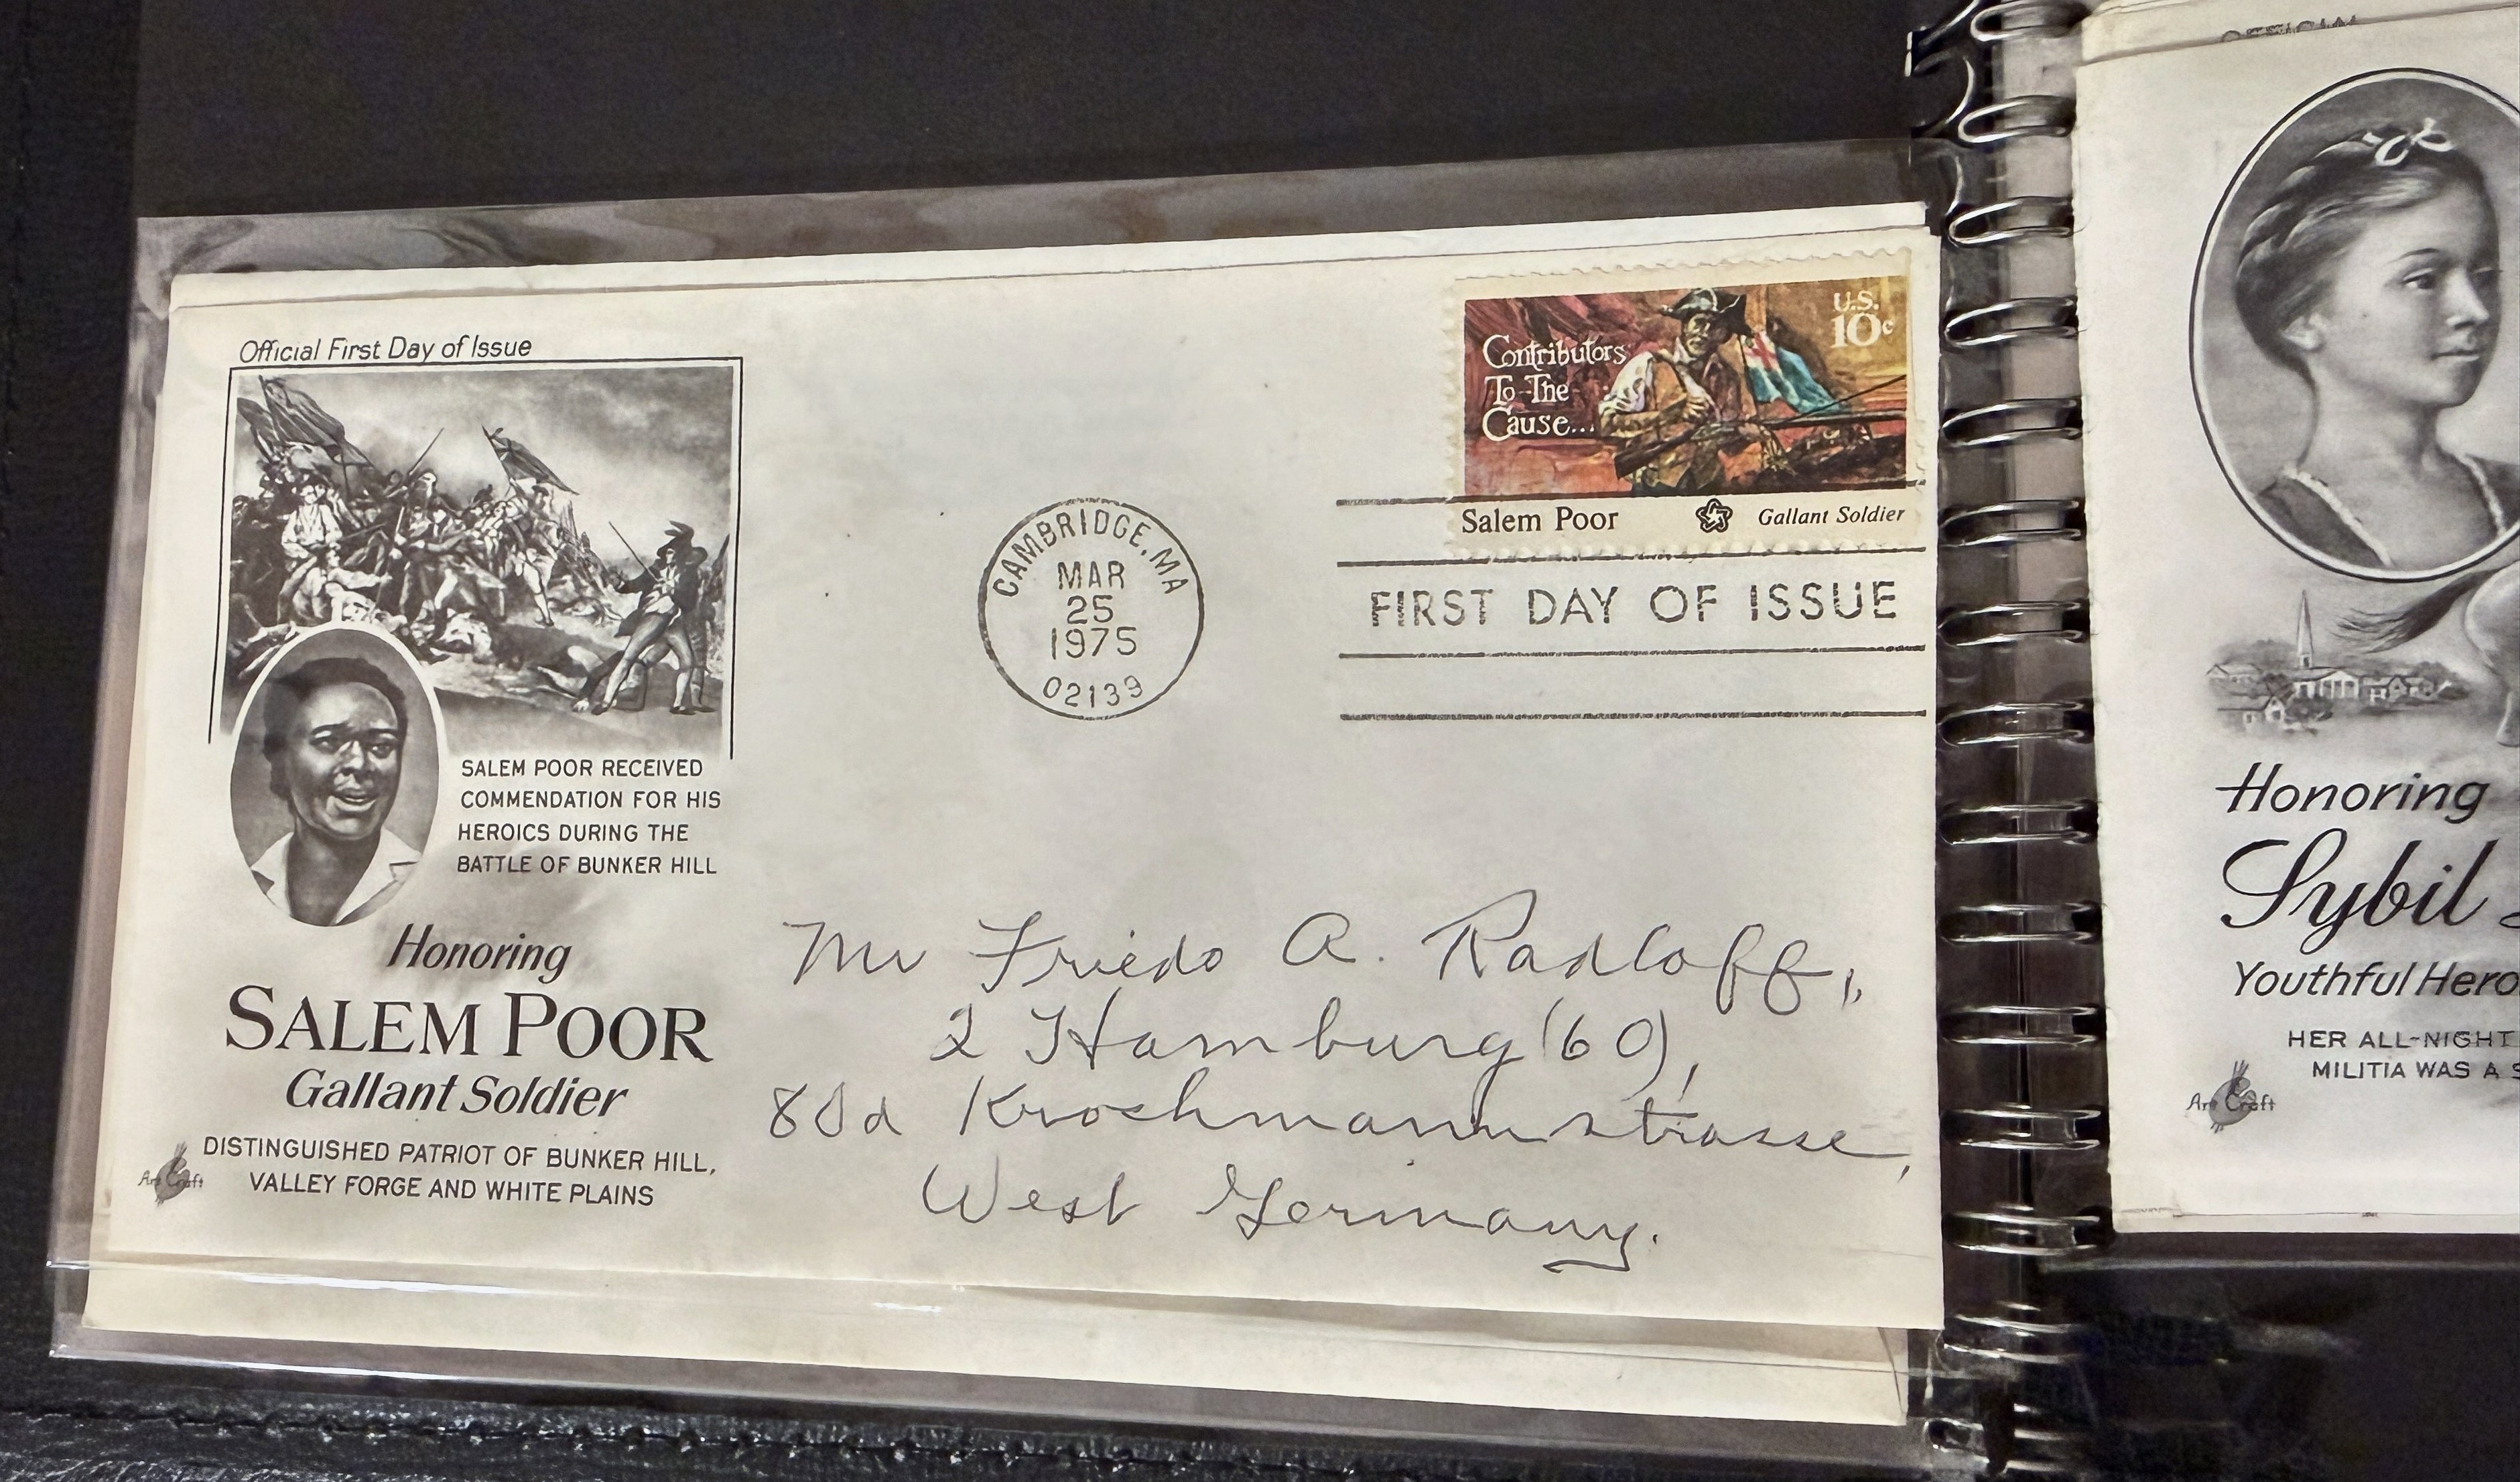 Official First Day of Issue
SALEM POOR RECEIVED
COMMENDATION FOR HIS
HEROICS DURING THE
BATTLE OF BUNKER HILL
Honoring
SALEM POOR
Gallant Soldier
DISTINGUISHED PATRIOT OF BUNKER HILL,
VALLEY FORGE AND WHITE PLAINS
Art Craft
CAMBRIDGE, MA
MAR
25
1975
02139
U.S.
10c
Contributors
To The
Cause...
Salem Poor Gallant Soldier
FIRST DAY OF ISSUE
Mr Friedo A. Radloff,
2 Hamburg (60),
Krochmannstrasse,
West Germany.
OFFICIAL
Honoring
Sybil
Youthful Hero
HER ALL-NIGHT
MILITIA WAS A
Art Craft